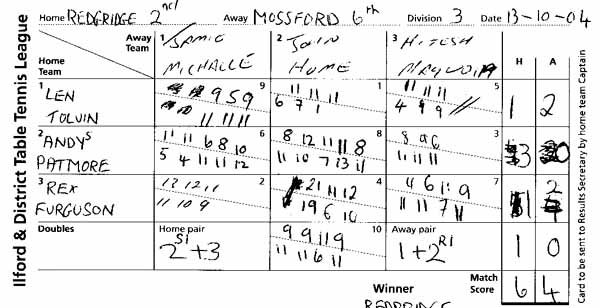 Ilford & District Table Tennis League
Home REDGRIDGE 2nd Away MOSSFORD 6th Division 3 Date 13-10-04
Away Team
Home Team
1 JAMIE MICHALLE
2 JOHN HUME
3 HITESH
H A
1 LEN TOLVIN
9
9 5 9
11 11 11
1
11 11 11
6 7 1
5
11 11 11
4 9 9
1 2
2 ANDY S PATMORE
6
11 11 6 8 10
5 4 11 11 12
8
8 12 11 11 8
11 10 7 13 11
4
3
8 9 6
11 11 11
3 0
3 REX FURGUSON
2
13 12 11
11 10 9
4
21 11 12
19 6 10
7
4 6 11 9
11 11 7 11
1 2
Doubles
Home pair
2 S1 + 3
10
9 9 11 9
11 11 6 11
Away pair
1 + 2 R1
1 0
Winner
Match Score
6 4
REDBRIDGE
Card to be sent to Results Secretary by Home team Captain